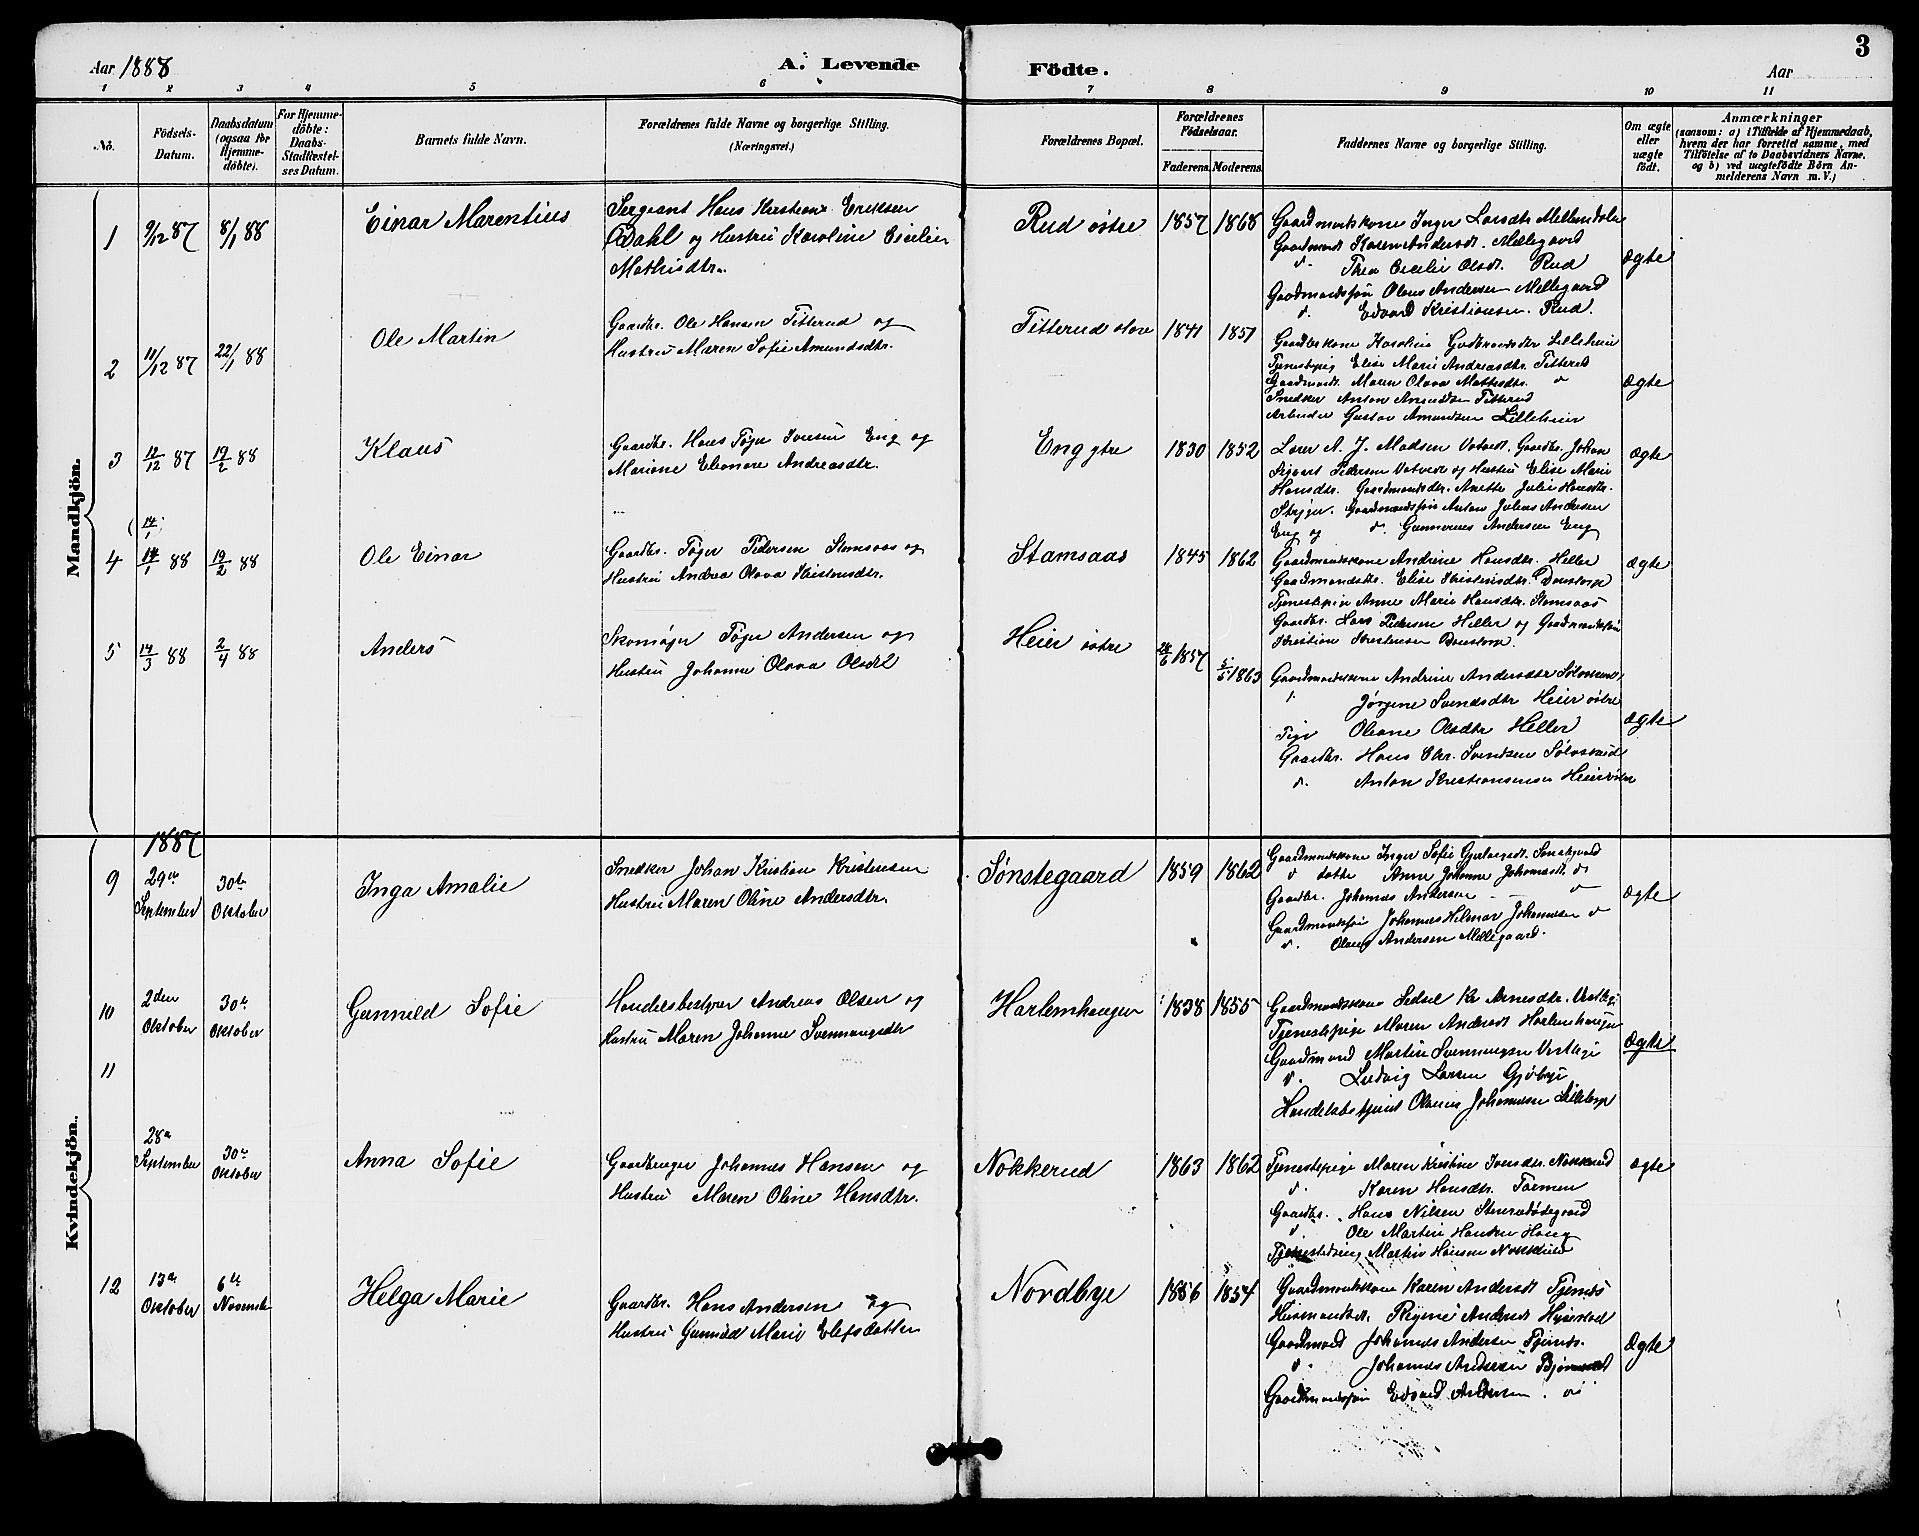 Aar 1888
A. Levende Födte.
Aar
3
1 2 3 4 5 6 7 8 9 10 11
No.
Födsels-Datum.
Daabsdatum (ogsaa for Hjemme-döbte).
For Hjemme-döbte: Daabs-Stadfæstel-ses Datum.
Barnets fulde Navn.
Forældrenes fulde Navne og borgerlige Stilling.
(Næringsvei.)
Forældrenes Bopæl.
Forældrenes Födselsaar.
Faderens. Moderens.
Faddernes Navne og borgerlige Stilling.
Om ægte eller uægte födt.
Anmærkninger
(saasom: a) i Tilfælde af Hjemmedaab, hvem der har forrettet samme, med Tilföielse af to Daabsvidners Navne, og b) ved uægtefödte Börn An-melderens Navn m. V.)
Mandkjön.
1 9/12 87 8/1 88 Einar Marentius
Sergeant Hans Kristian Eriksen
Dahl og Hustru Karoline Cicilie
Mathisdtr.
Rud østre 1857 1868
Gaardmandskone Inger Larsdtr
Gaardmandsdt. Karen Andersdt. Mellegaard
d. Thea Cecilie Olsdt. Rud
Gaardmandsøn Olaus Andersen Mellegaard
d. Edvard Kristiansen Rud.
Ægte
2 11/12 87 22/1 88 Ole Martin
Gaardbr. Ole Hansen Titterud og
Hustru Maren Sofie Amundsdtr.
Titterud 1841 1851
Gaardbrkone Karoline Gudbrandsdtr Lilleheier
Tjenestepig Elise Marie Andreasdtr. Titterud
Gaardmandt. Maren Olava Mathisdtr. d
Snedker Anton Amundsen Titterud
Arbeider Gustav Amundsen Lilleheier
Ægte
3 11/12 87 19/2 88 Klaus
Gaardbr. Hans Tøger Iversen Eng og
Mariane Eleonore Andreasdtr.
Eng ytre 1830 1852
Lærer A. J. Madsen Votvedt. Gaardbr. Johan
Sigvart Pedersen Votvedt og Hustru Elise Marie
Hansdtr. Gaardmandsdtr. Anette Julie Hansdtr.
Gaardmandsøn Antons Julius Andersen
Eng og d. Gunnerius Andersen Eng
Ægte
(14/1)
4 14/1 88 19/2 88 Ole Einar
Gaardbr. Tøger Pedersen Stamsaas og
Hustru Andrea Olava Kristensdtr.
Stamsaas 1845 1862
Gaardmandskone Andrine Hansdtr. Heller
Gaardmandsdtr. Elise Kristensdtr.
Tjenestepige Anne Marie Hansdtr. Stamsaas
Gaardbr. Lars Pedersen Heller og Gaardmandsøn
Kristian Kristensen
Ægte
5 14/3 88 2/4 88 Anders
Skomager Tøger Andersen og
Hustru Johanne Olava Olsdtr
Heier østre 1857 5/5 1863
Gaardmandskone Andrine Andersdtr
d. Jørgine Svendsdtr Heier østre
Pige Oleane Olsdtr Heller
Gaardbr. Hans Chr. Svendsen
d. Anton Kristiansen Heier østre
Ægte
Kvindekjön.
1887
9 29de September 30te Oktober Inga Amalie
Snedker Johan Kristian Kristensen
Hustru Maren Oline Andersdtr.
Sønstegaard 1859 1862
Gaardmandskone Inger Sofie
d datter Anne Johanne Johannesdt. d
Gaardbr. Johannes Andersen - d
Gaardmandsøn Johannes Hilmar Johannesen d
d. Olaus Andersen Mellegaard.
Ægte
10 2den Oktober 30te Oktober Gunnild Sofie
Handelsbestyrer Andreas Olsen og
Hustru Maren Johanne Svenningsdtr
Harlemhaugen 1838 1855
Gaardmandskone Sidsel Kr Arnesdtr. Vestby
Tjenestepige Maren Andersdt Harlemhaugen
Gaardmand Martin Svenningsen Vestbye
d. Ludvig Larsen Gjøbye
Johannesen
Ægte
11
28de September 30te Oktober Anna Sofie
Gaardbruger Johannes Hansen og
Hustru Maren Oline Hansdtr.
Nokkerud 1863 1862
Tjenestepige Maren Kristine Iversdtr. Nokkerud
d. Karen Hansdtr.
Gaardbr. Hans Nilsen
d. Ole Martin Hansen Haug
Tjenestedreng Martin Hansen Nokkerud
Ægte
12 13de Oktober 6te November Helga Marie
Gaardbr. Hans Andersen og
Hustru Gunnild Marie Elefsdatter
Nordbye 1856 1854
Gaardmandskone Karen Andersdt Tjernæs
Husmandsdt. Regine Andersdt
Gaardmand Johannes Andersen Tjernæs.
d. Johannes Andersen
Gaardmandsøn Edvard Andersen. d
Ægte